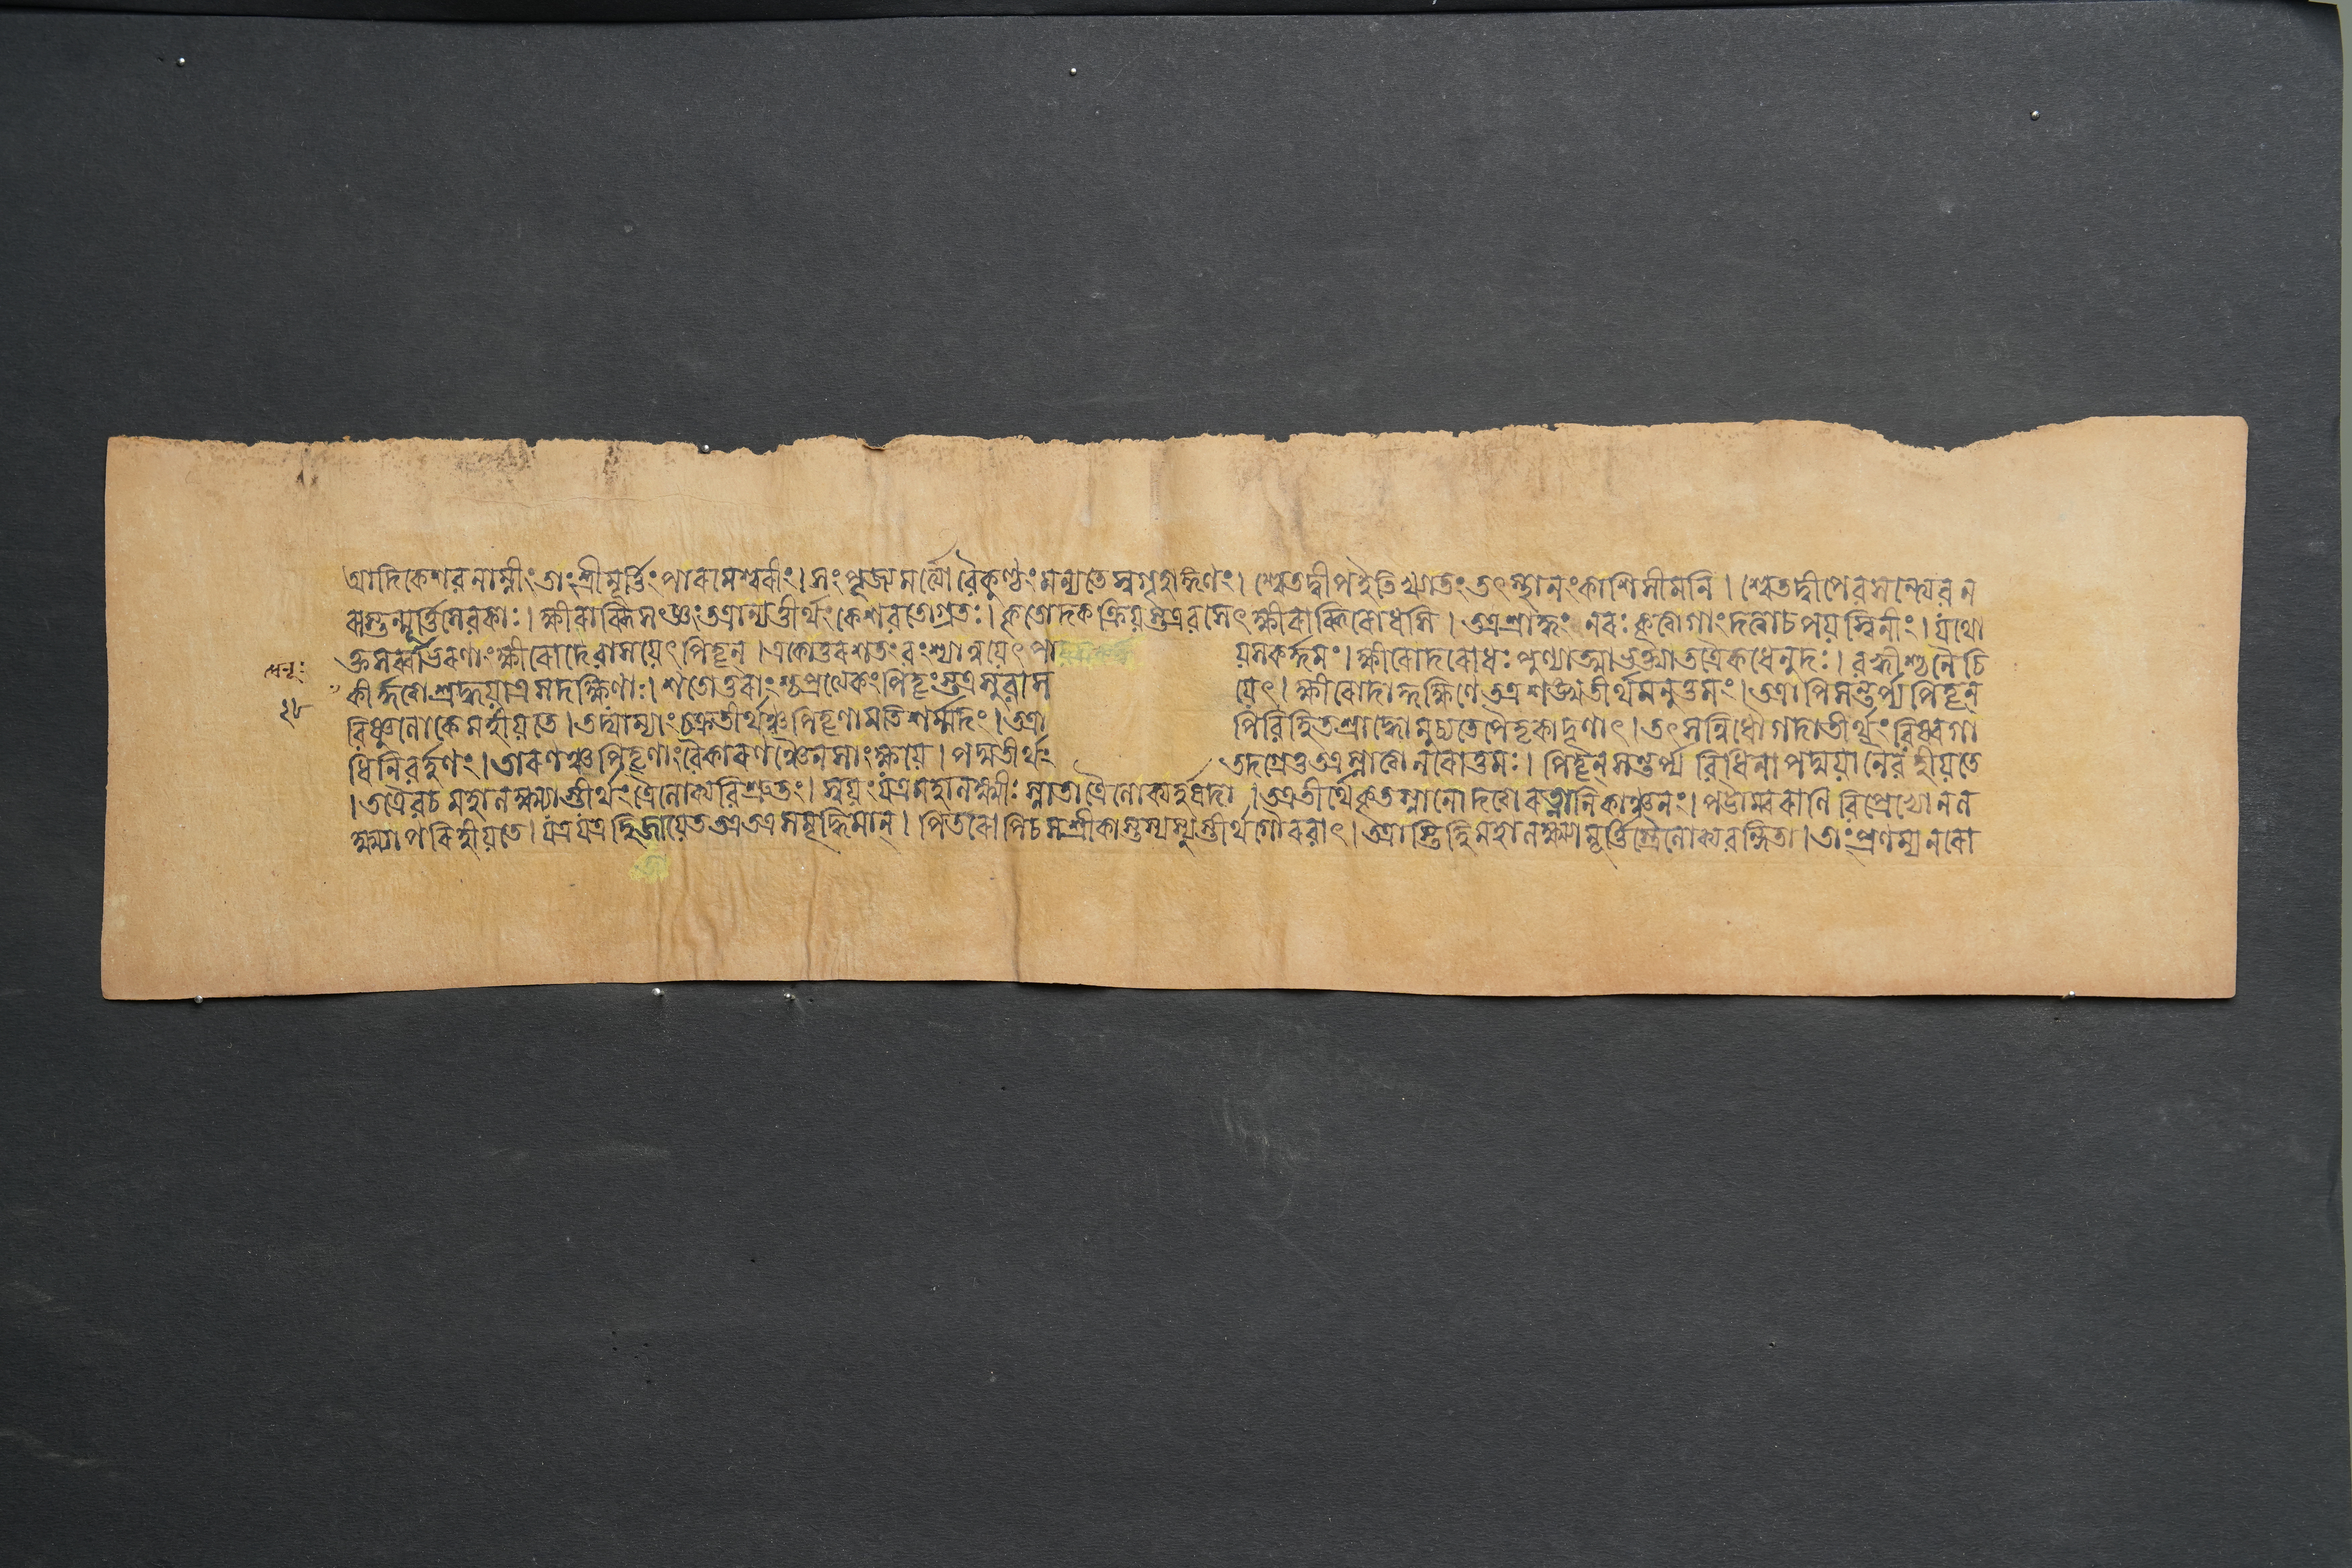 আদিকেশবনাম্নীং তাং শ্রীমূর্ত্তিং পারমেশ্বরীং। সংপূজ্য মর্ত্ত্যো বৈকুণ্ঠং মন্যতে স্বগৃহাঙ্গণং। শ্বেতদ্বীপ ইতি খ্যাতং তৎস্থানং কাশিসীমনি। শ্বেতদ্বীপে বসন্ত্যেব ন
রাস্তন্মূর্ত্তিসেবকাঃ। ক্ষীরাব্ধিসংজ্ঞং তত্রান্যত্তীর্থং কেশবতোগ্রতঃ। কৃতোদকক্রিয়স্তত্র বসেৎ ক্ষীরাব্ধিরোধসি। তত্র শ্রাদ্ধং নরঃ কৃত্বা গাং দত্বা চ পয়স্বিনীং। যথো
ক্তসর্ব্বাভরণাং ক্ষীরোদে বাসয়েৎ পিতৄন্। একোত্তরশতং বংশ্যান্নয়েৎ পা য়সকর্দ্দমং। ক্ষীরোদরোধঃ পুণ্যাত্মা ভক্ত্যা তত্রৈকধেনুদঃ। বহ্বীশ্চ নৈচি
কীর্দ্দত্বা শ্রদ্ধয়াত্র সদক্ষিণাঃ। শতোত্তরাংশ্চ প্রত্যেকং পিতৄংস্তত্র সুবাস য়েৎ। ক্ষীরোদাদ্দক্ষিণে তত্র শঙ্খতীর্থমনুত্তমং। তত্রাপি সন্তর্প্য পিতৄন্
২৮ বিষ্ণুলোকে মহীয়তে। তদ্যাম্যাং চক্রতীর্থঞ্চ পিতৄণামতিশর্ম্মদং। তত্রা পি বিহিতশ্রাদ্ধো মুচ্যতে পৈতৃকাদৃণাৎ। তৎসন্নিধৌ গদাতীর্থং বিষ্বগা
ধিনিবর্হণং। তারণঞ্চ পিতৄণাং বৈ কারণঞ্চৈনসাং ক্ষয়ে। পদ্মতীর্থং তদগ্রে তু তত্র স্নাত্বা নরোত্তমঃ। পিতৄন্ সন্তর্প্য বিধিনা পদ্ময়া নৈব হীয়তে
। তত্রৈব চ মহালক্ষ্ম্যাস্তীর্থং ত্রৈলোক্যবিশ্রুতং। স্বয়ং যত্র মহালক্ষ্মীঃ স্নাতা ত্রৈলোক্যহর্ষদা। তত্র তীর্থে কৃতস্নানো দত্বা রত্নানি কাঞ্চনং। পট্টাম্বরাণি বিপ্রেভ্যো ন ল
ক্ষ্ম্যা পরিহীয়তে। যত্র যত্র হি জায়েত তত্র তত্র সমৃদ্ধিমান্। পিতরোপি চ সশ্রীকাস্তস্য স্যুস্তীর্থগৌরবাৎ। তত্রাস্তি হি মহালক্ষ্ম্যা মূর্ত্তিস্ত্রৈলোক্যবন্দিতা। তাং প্রণম্য নরো